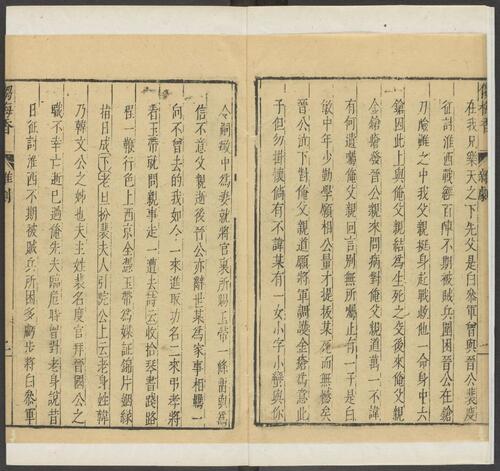 㑳梅香
雜劇
一
在我兄樂天之下先父是白參軍曾與晉公裴度
征討淮西戰經百陣不期被賊兵圍困晉公在鎗
刀險難之中我父親挺身赴戰救他一命身中六
鎗因此上與俺父親結爲生死之交後來俺父親
金鎗瘡發晉公親來問病對俺父親道萬一不諱
有何遺囑俺父親回言別無所囑止有一子是白
敏中年少勤學願相公量才提拔某死而無憾矣
晉公淚下對俺父親道願將軍調護金瘡爲意此
子但勿掛懷倘有不諱某有一女小字小蠻與你
令嗣敏中爲妻就將官裏所賜玉帶一條與爲
信不意父親逝後晉公亦辭世某爲家事相羈一
向不曾去的我如今一來進取功名二來弔孝將
着玉帶就問親事走一遭去詩云收拾琴書踐路
程一鞭行色上西京全憑玉帶爲媒証錦片姻緣
指日成下老旦扮裴夫人引院公上云老身姓韓
乃韓文公之妙也夫主姓裴名度官拜晉國公之
職不幸亡逝已過俺先夫臨危時曾對老身說昔
日征討淮西不期被賊兵所困多虧步將白參軍
㑳梅香
雜劇
二